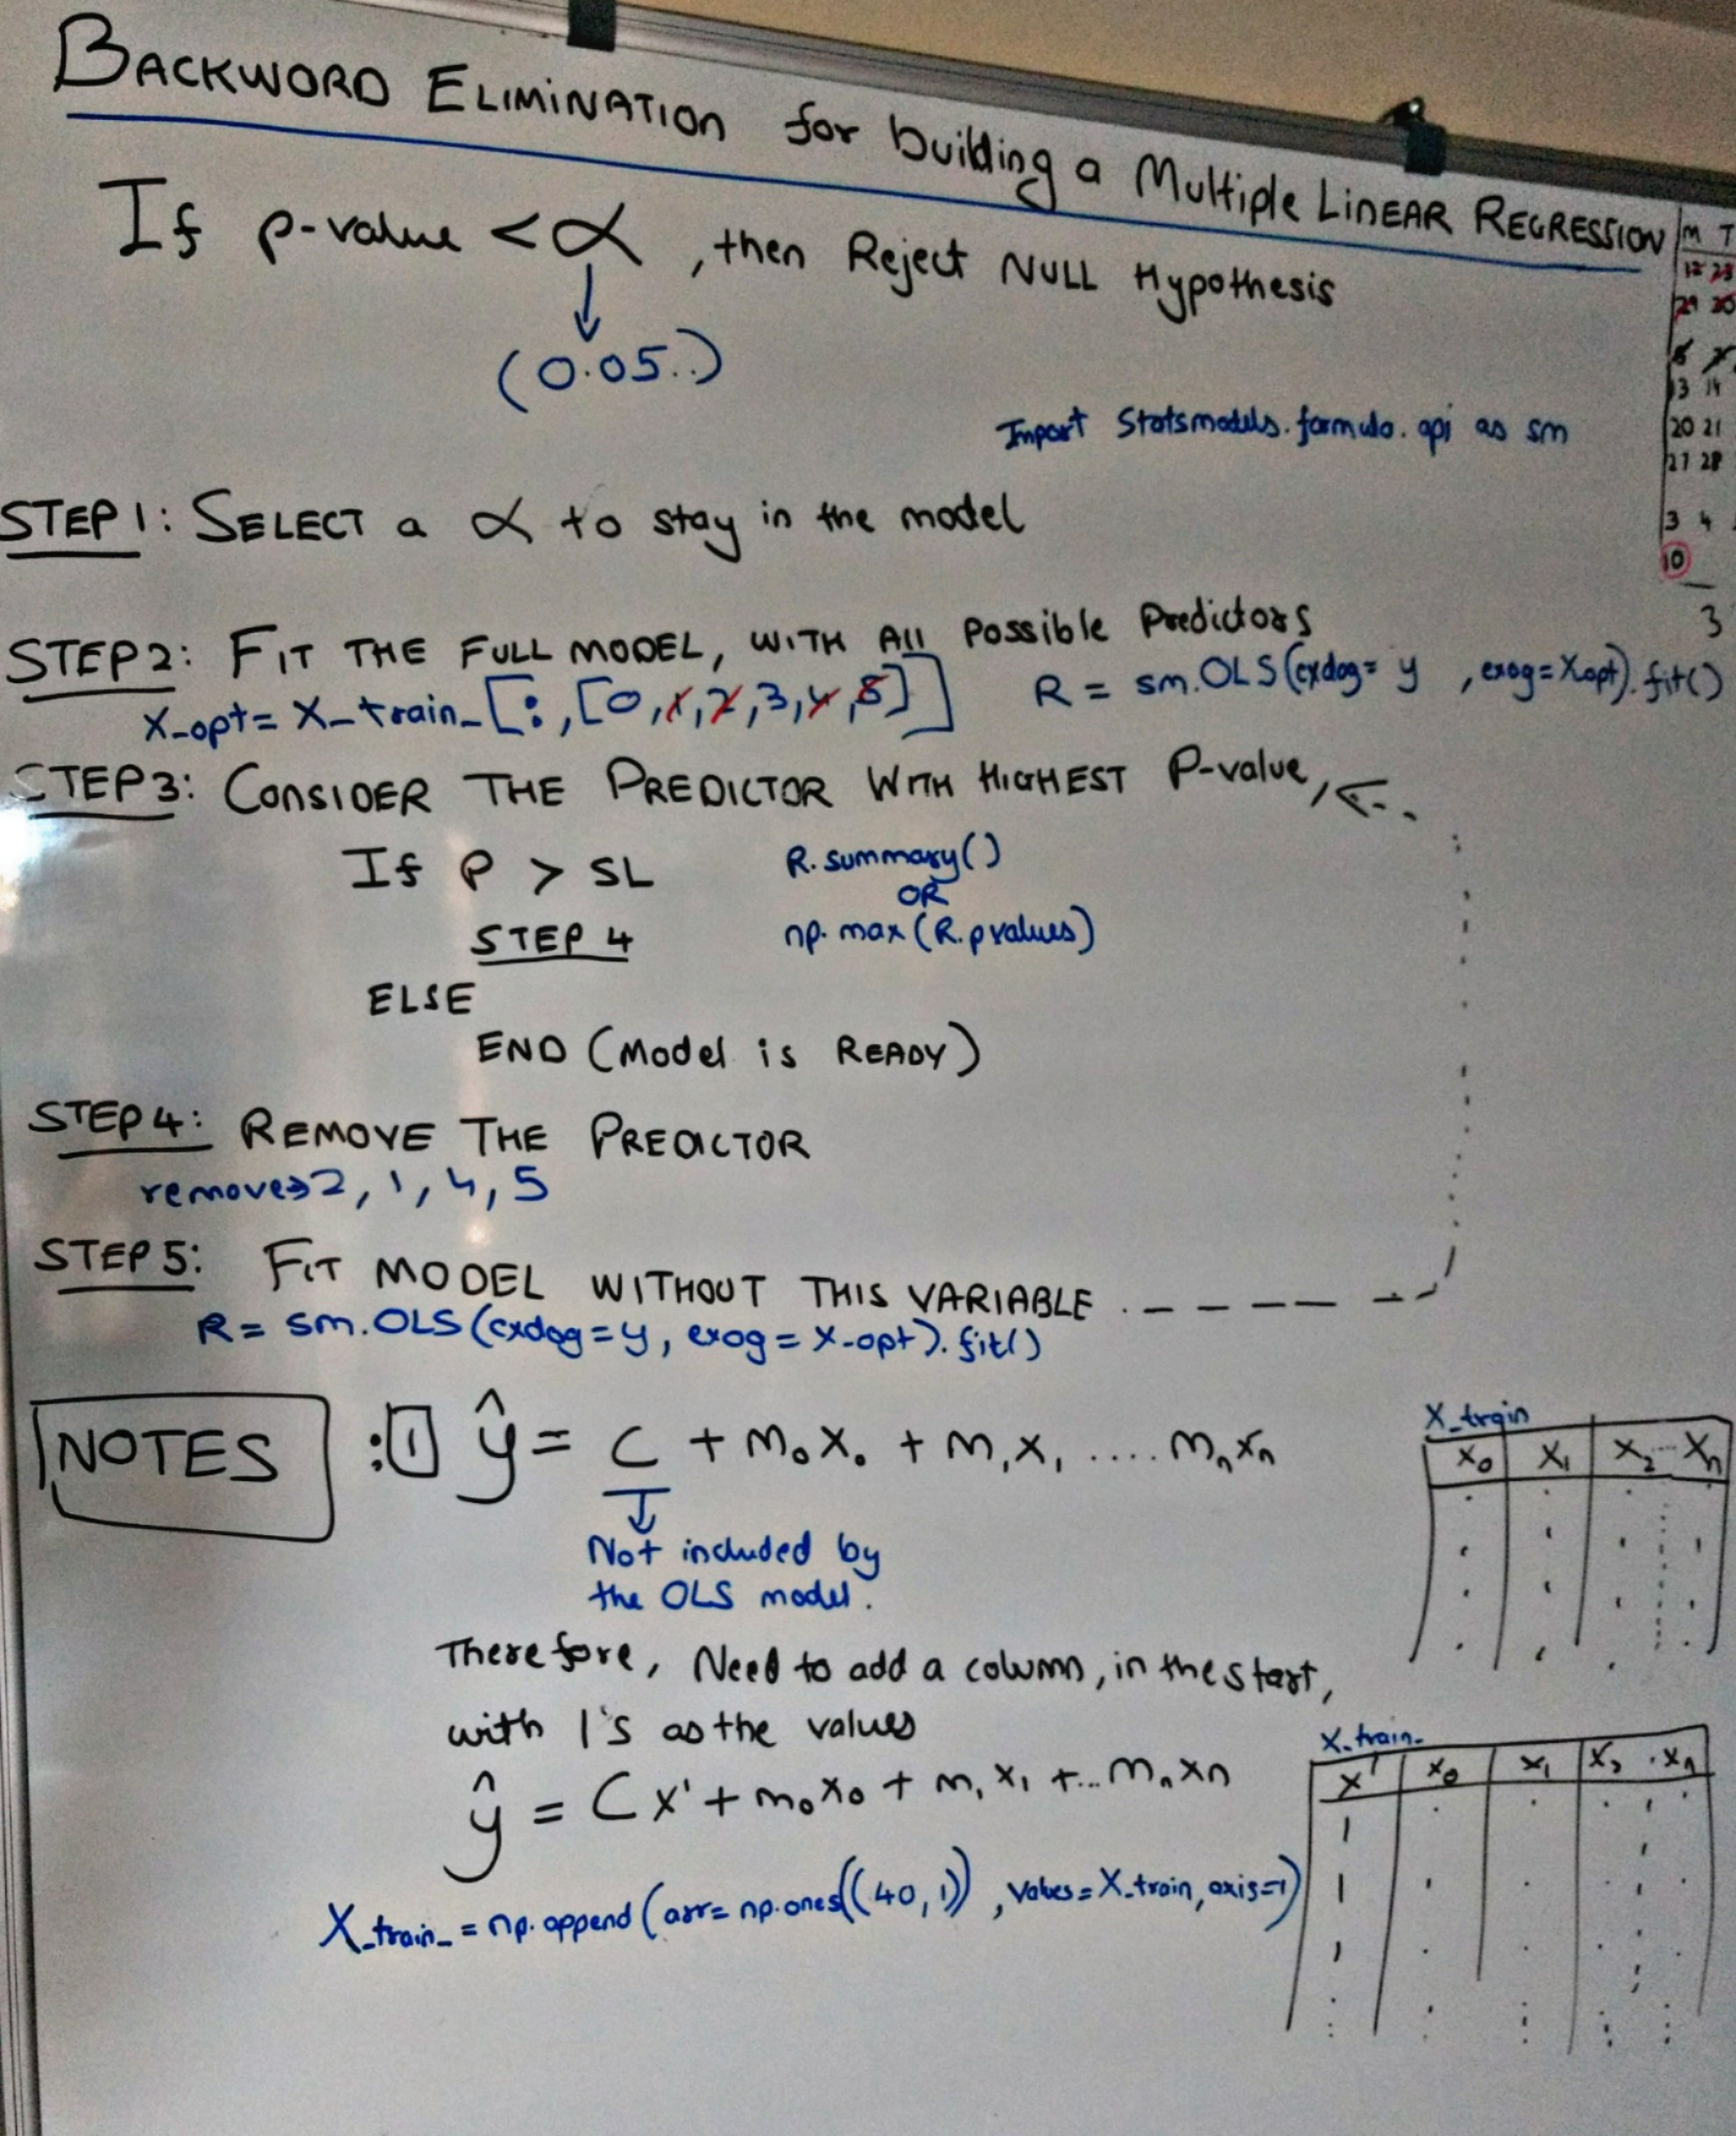 BACKWORD ELIMINATION for building a Multiple LINEAR REGRESSION
If p-value < α , then Reject NULL Hypothesis
(0.05..)
Import Statsmodels.formula.api as sm
M T
29 30
13 14
20 21
27 28
3 4
10
3
STEP 1: SELECT a α to stay in the model
STEP 2: FIT THE FULL MODEL, WITH All Possible Predictors
X_opt = X_train_[:,[0,1,2,3,4,5]] R = sm.OLS(exdog= y , exog=X_opt).fit()
STEP 3: CONSIDER THE PREDICTOR WITH HIGHEST P-value,
If P > SL R.summary()
OR
STEP 4 np.max(R.pvalues)
ELSE
END (Model is READY)
STEP 4: REMOVE THE PREDICTOR
remove→2, 1, 4, 5
STEP 5: FIT MODEL WITHOUT THIS VARIABLE
R = sm.OLS(exdog=y, exog=X_opt).fit()
NOTES :1 ŷ = C + m₀x₀ + m₁x₁ .... mₙxₙ
Not included by
the OLS model.
X_train
x₀ x₁ x₂ ... xₙ
Therefore, Need to add a column, in the start,
with 1's as the values
ŷ = Cx' + m₀x₀ + m₁x₁ +... mₙxₙ
X_train_
x' x₀ x₁ x₂ . xₙ
1
1
1
X_train_ = np.append(arr= np.ones((40,1)) , values=X_train, axis=1)